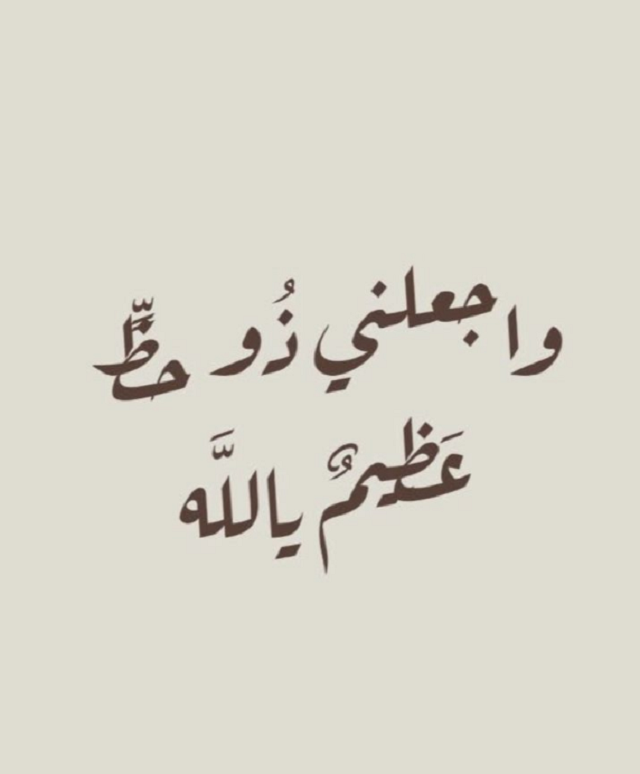 واجعلني ذُو حظٍّ
عَظيمٌ ياللَّه